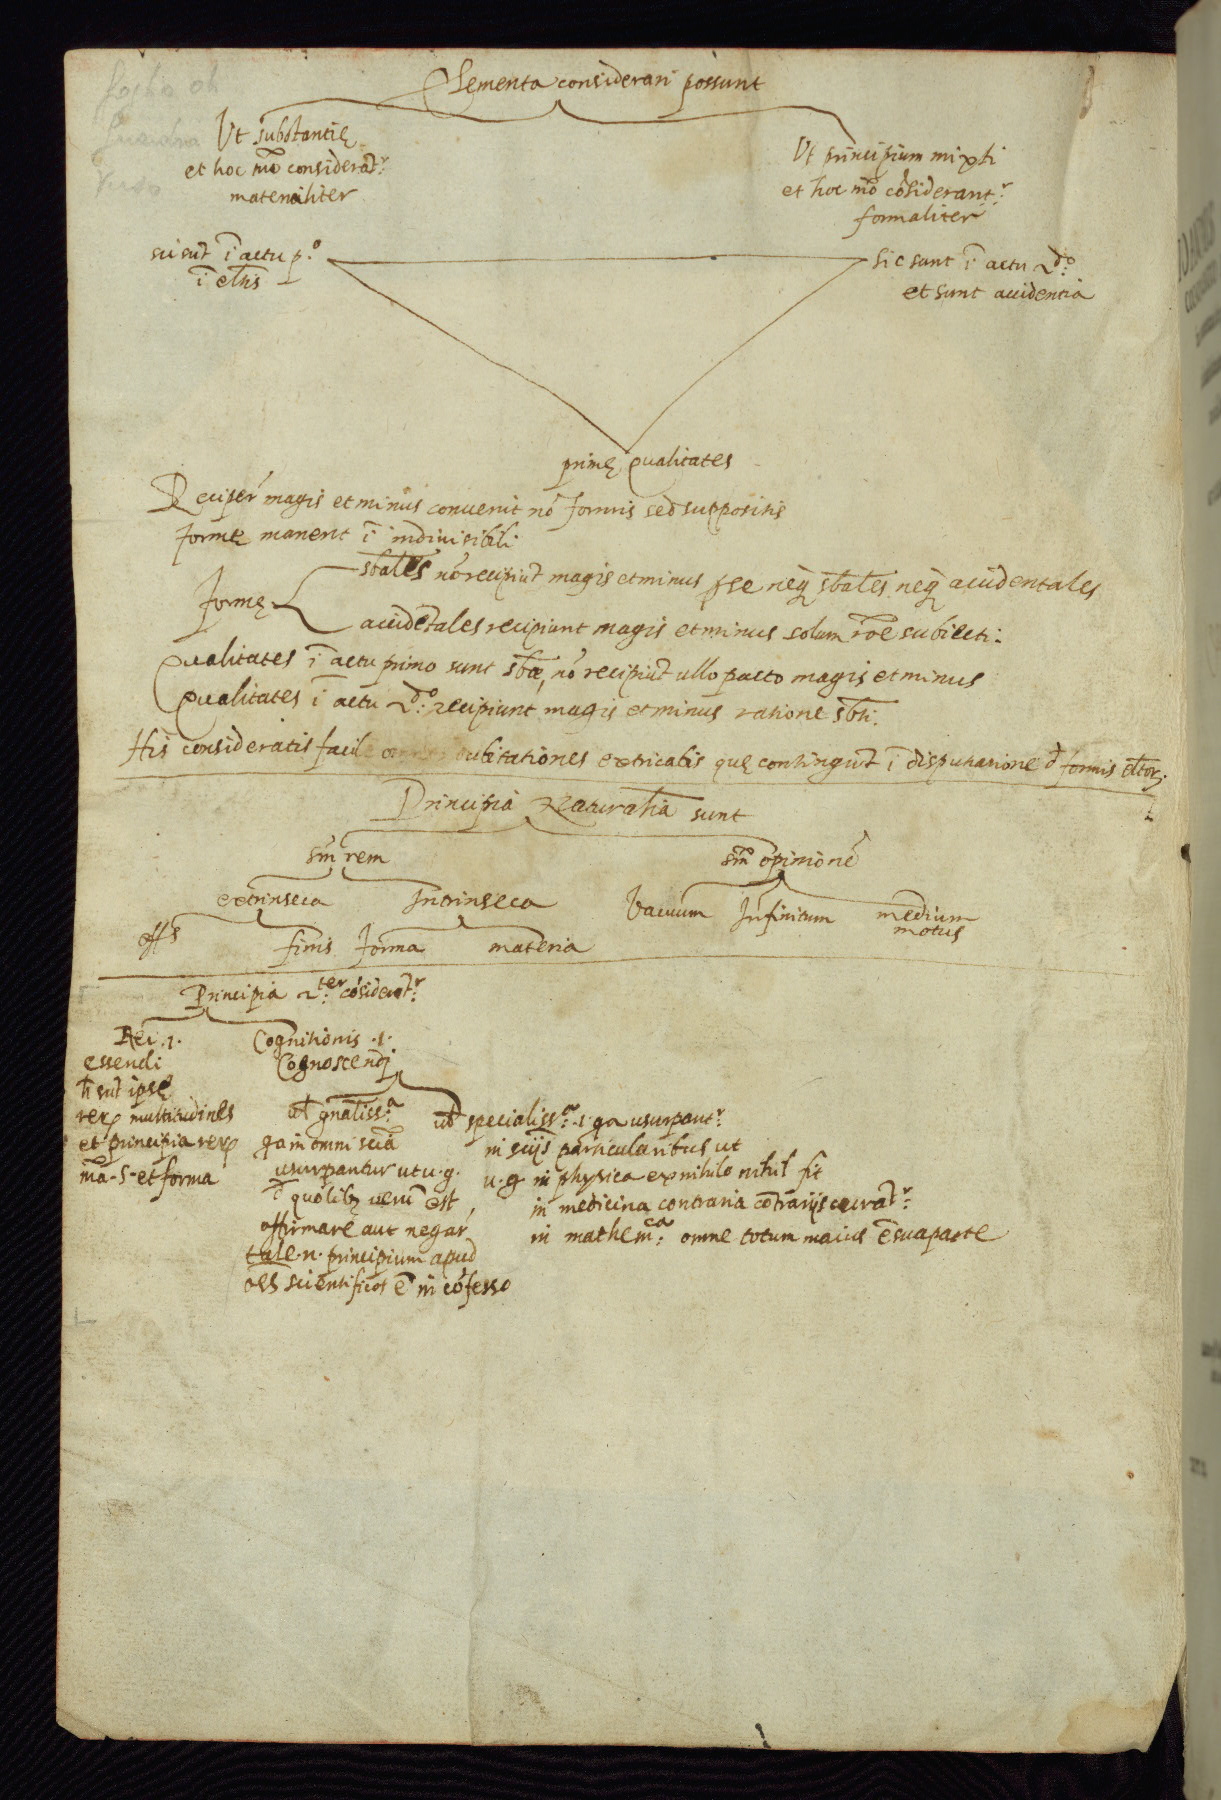 Elementa considerari possunt
Ut substantię
et hoc mō considerāt.r
materialiter
sic sūt ī actu p.o
ī elīs
Ut principium mixti
et hoc mō cōsiderant.r
formaliter
sic sunt ī actu 2do.
et sunt accidentia
primę qualitates
Reciper̄ magis et minus convenit nō formis sed suppositis
formę manent ī indivisibili
formę
stales nō recipiūt magis et minus p se neq stales neq accidentales
accidētales recipiunt magis et minus solum rōe subiecti.
Qualitates ī actu primo sunt stae, nō recipiūt ullo pacto magis et minus
Qualitates ī actu 2do. recipiunt magis et minus ratione sbti.
His consideratis facile dubitationes extricabis quę contingūt ī disputatione d formis eltor.
Principia Naturalia sunt
sm rem
sm opinionē
extrinseca
Intrinseca
Vacuum
Infinitum
medium
motus
effs
finis
forma
materia
Principia 2.ter cōsiderāt.r
Rei .i.
essendi
h̄ sūt ipsę
rerū multitudines
et principia rerū
mā .s. et forma
Cognitionis .i.
Cognoscendi
ut gnaliss.a
qa in omni sciā
usurpantur ut v.g.
d quolibz verū est
affirmare aut negar̄
tale .n. principium apud
oēs scientificos ē in cōfesso
ut specialiss.a .i. qa usurpant.r
in sciis particularibus ut
v.g. in physica ex nihilo nihil fit
in medicina contraria cōtrariis curāt.r
in mathem.ca omne totum maius ē sua parte